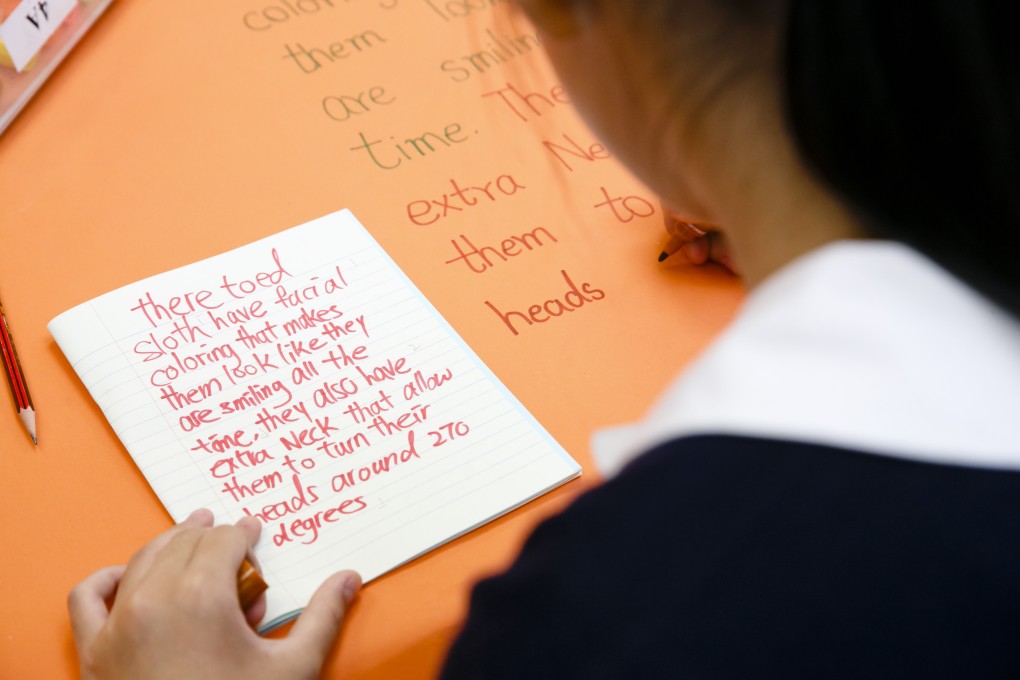 there toed
sloth have facial
coloring that makes
them look like they
are smiling all the
time, they also have
extra Neck that allow
them to turn their
heads around 270
degrees
coloring look
them smiling
are The
time. Ne
extra to
them
heads